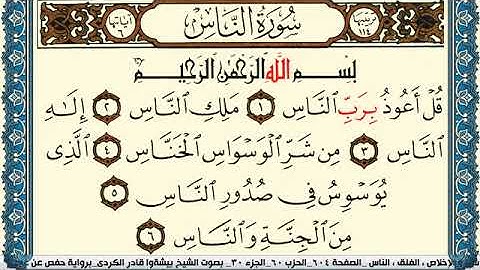 ترتيبها ١١٤ سُورَةُ النَّاسِ آياتها ٦
بِسْمِ ٱللَّهِ ٱلرَّحْمَٰنِ ٱلرَّحِيمِ
قُلْ أَعُوذُ بِرَبِّ ٱلنَّاسِ ١ مَلِكِ ٱلنَّاسِ ٢ إِلَٰهِ
ٱلنَّاسِ ٣ مِن شَرِّ ٱلْوَسْوَاسِ ٱلْخَنَّاسِ ٤ ٱلَّذِي
يُوَسْوِسُ فِي صُدُورِ ٱلنَّاسِ ٥
مِنَ ٱلْجِنَّةِ وَٱلنَّاسِ ٦
لإخلاص ، الفلق ، الناس _الصفحة ٦٠٤_الحزب ٦٠_الجزء ٣٠_ بصوت الشيخ بيشةوا قادر الكردى_برواية حفص عن